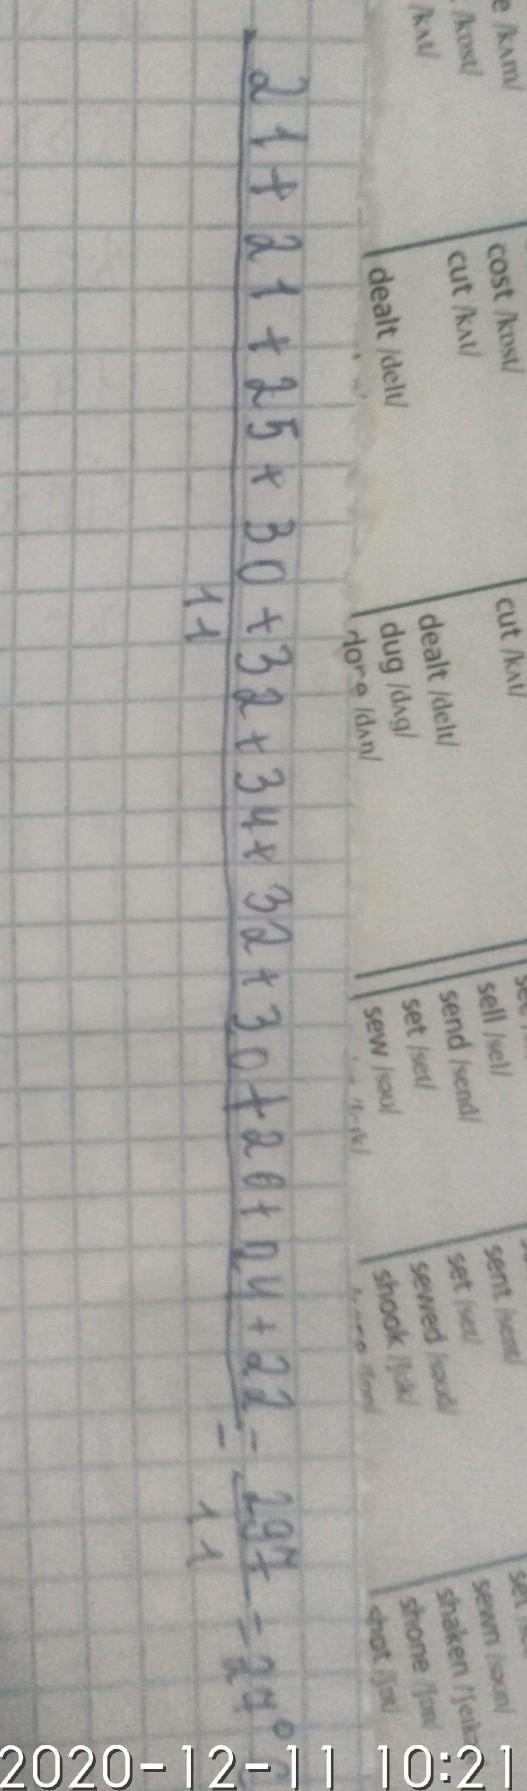 /kʌm/
/kɒst/ cost /kɒst/
/kʌt/ cut /kʌt/ cut /kʌt/
dealt /delt/ dealt /delt/
dug /dʌg/
done /dʌn/
sell /sel/
send /send/ sent /sent/
set /set/ set /set/ set
sew /səʊ/ sewed /səʊd/ sewn /səʊn/
shook /ʃʊk/ shaken
shone /ʃɒn/
shot /ʃɒt/
21+21+25+30+32+34+32+30+26+24+22 = 297 = 27°
11 11
2020-12-11 10:21